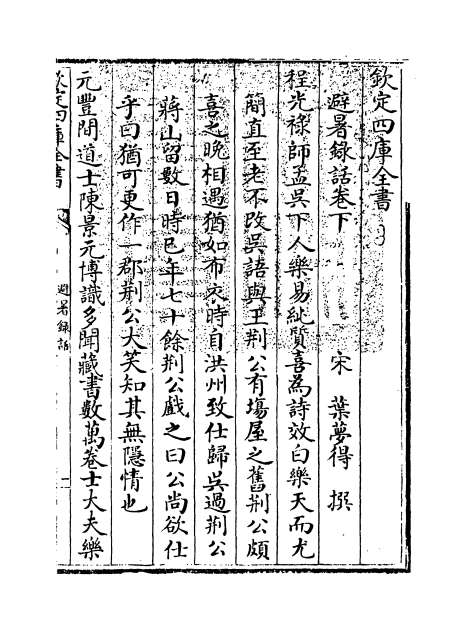 欽定四庫全書
避暑錄話卷下
宋 葉夢得 撰
程光祿師孟吳下人樂易純質喜為詩效白樂天而尤
簡直至老不改吳語與王荆公有塲屋之舊荆公頗
喜之晚相遇猶如布衣時自洪州致仕歸吳過荆公
蔣山留數日時已年七十餘荆公戲之曰公尚欲仕
乎曰猶可更作一郡荆公大笑知其無隱情也
元豐間道士陳景元博識多聞藏書數萬卷士大夫樂
欽定四庫全書
避暑錄話